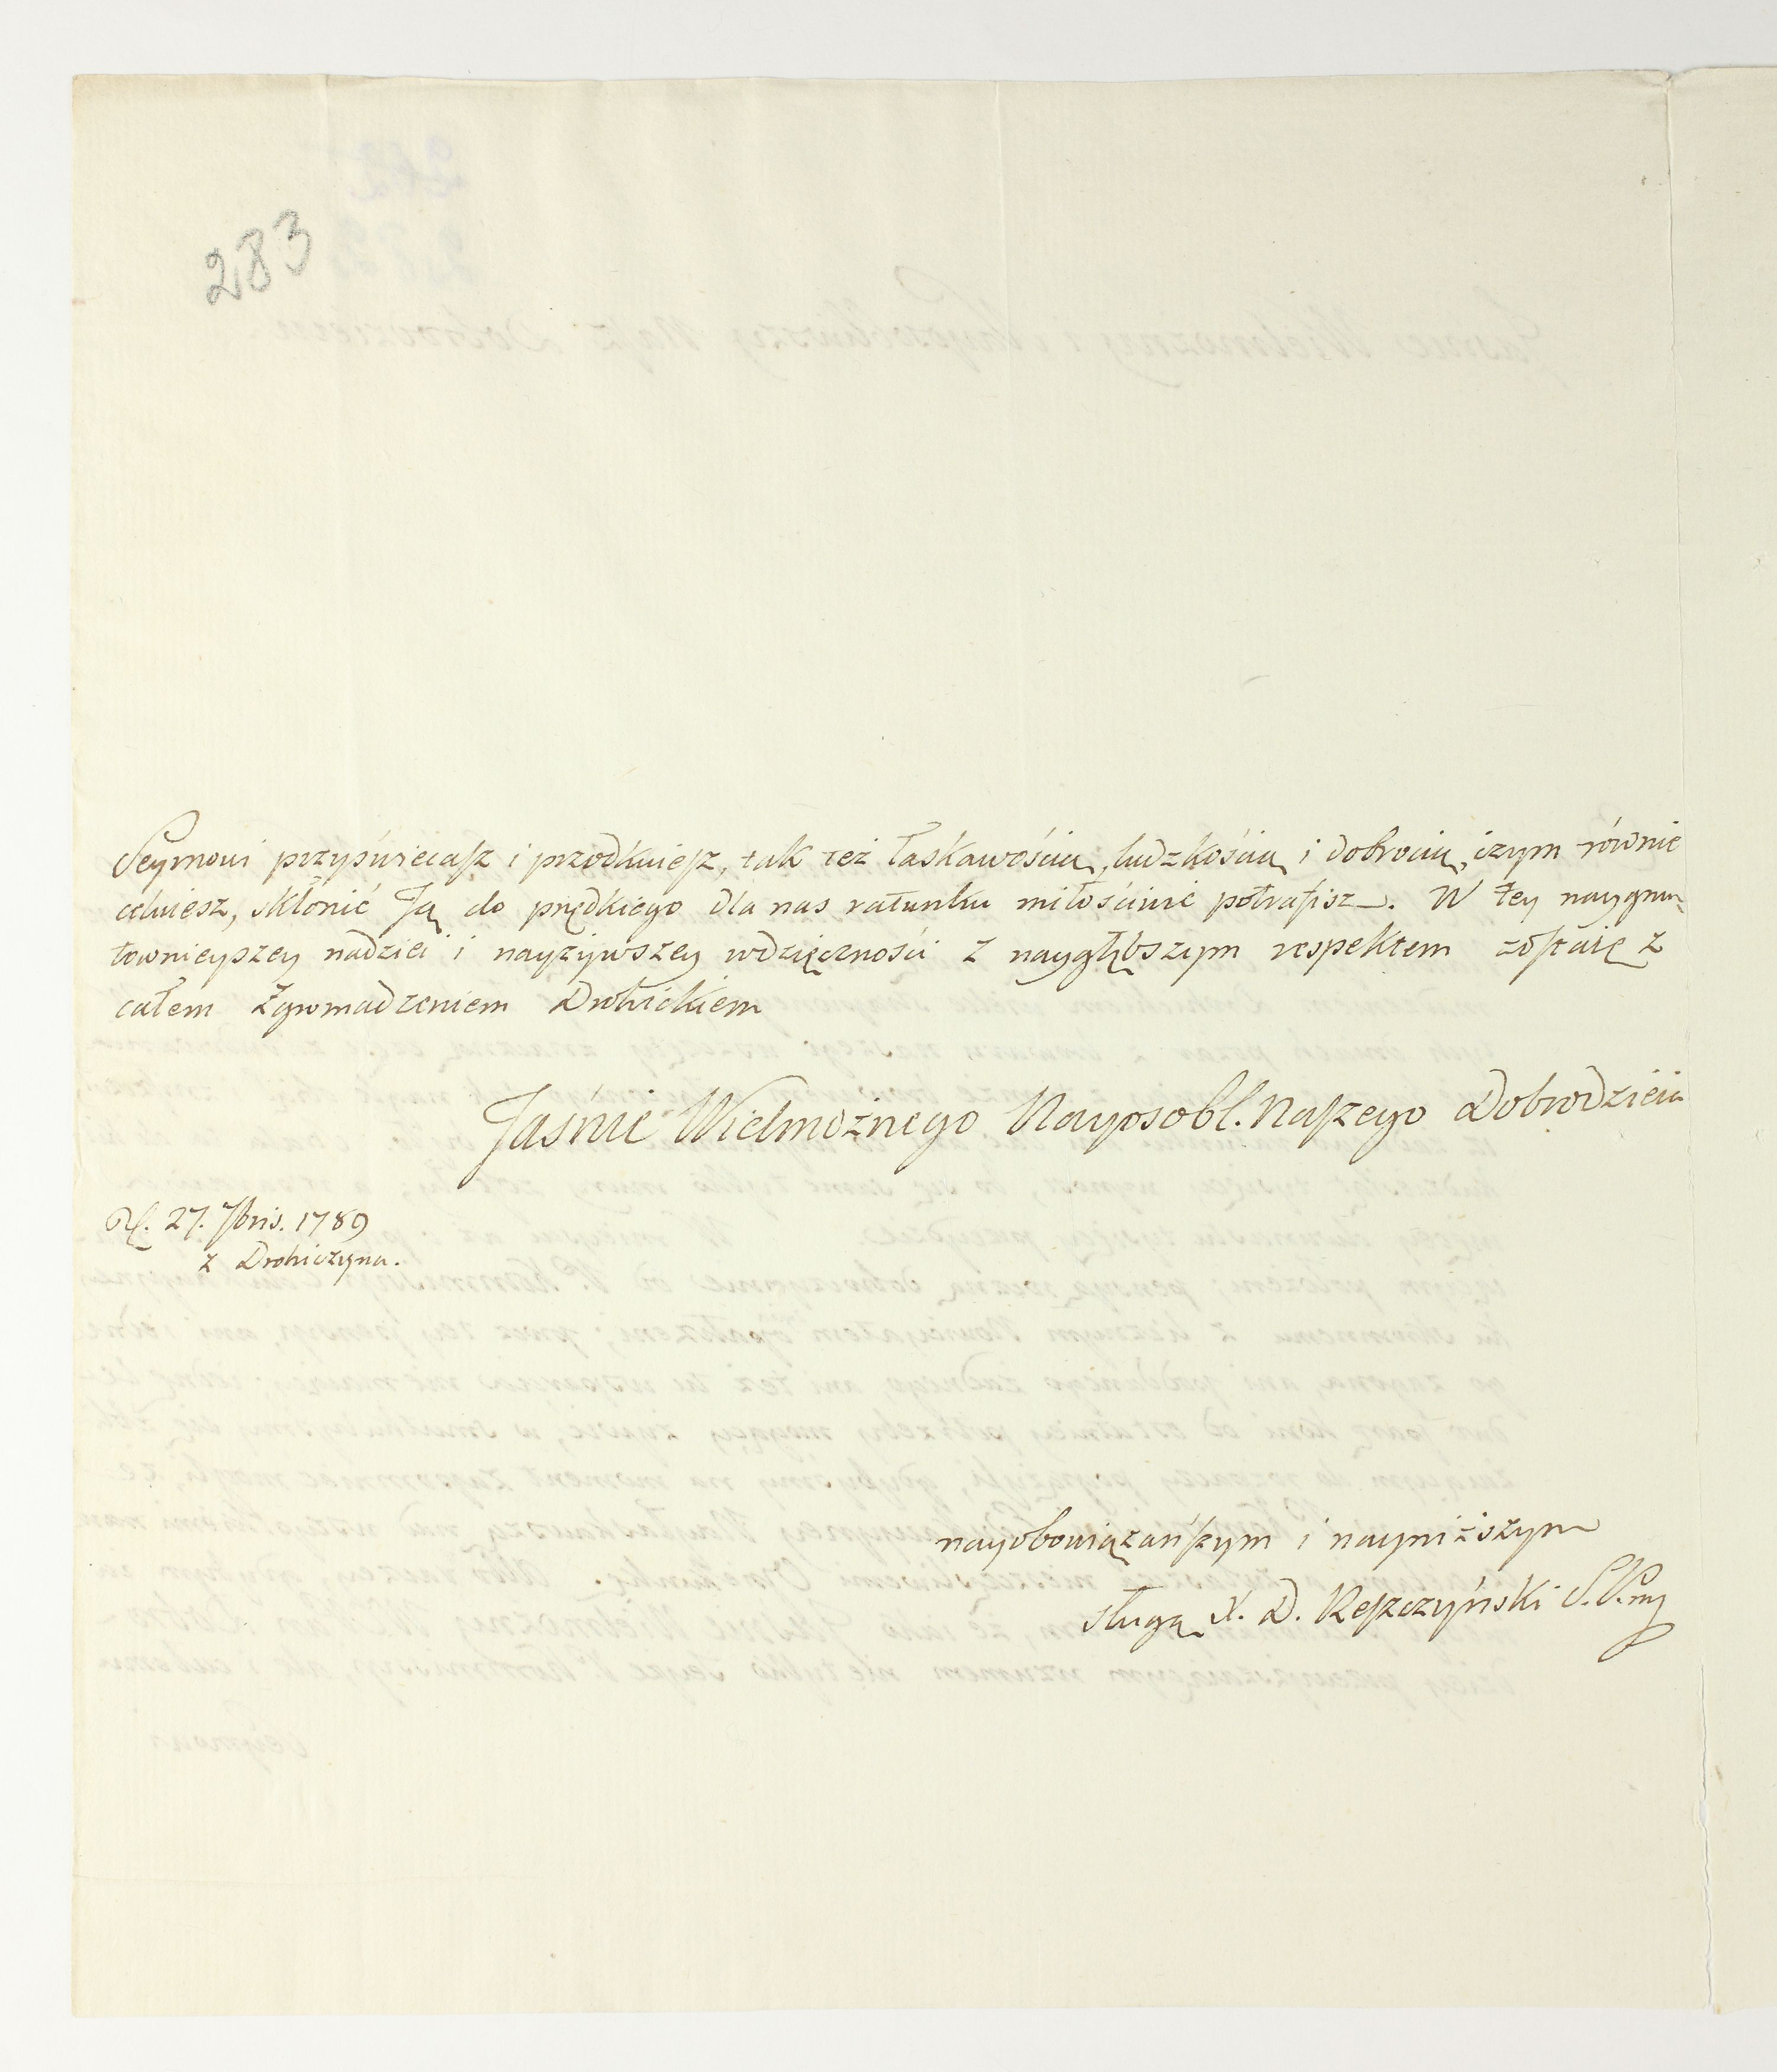 283
Seymowi przyświecasz i przodkuiesz, tak też łaskawością, ludzkością i dobrocią, czym równie
celuiesz, skłonić Ją do prędkiego dla nas ratunku miłościwie potrafisz. W tey naygrun-
townieyszey nadziei i nayżywszey wdzięczności z naygłębszym respektem zostaię z
całem Zgromadzeniem Drohickiem
Jaśnie Wielmożnego Nayosobl. Naszego Dobrodzieia
27. 7bris. 1789
z Drohiczyna.
nayobowiązańszym i nayniższym
sługą X. D. Reszczyński S.P.